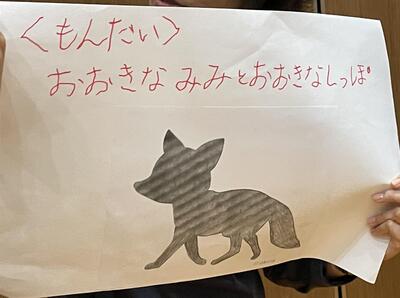 〈もんだい〉
おおきなみみとおおきなしっぽ